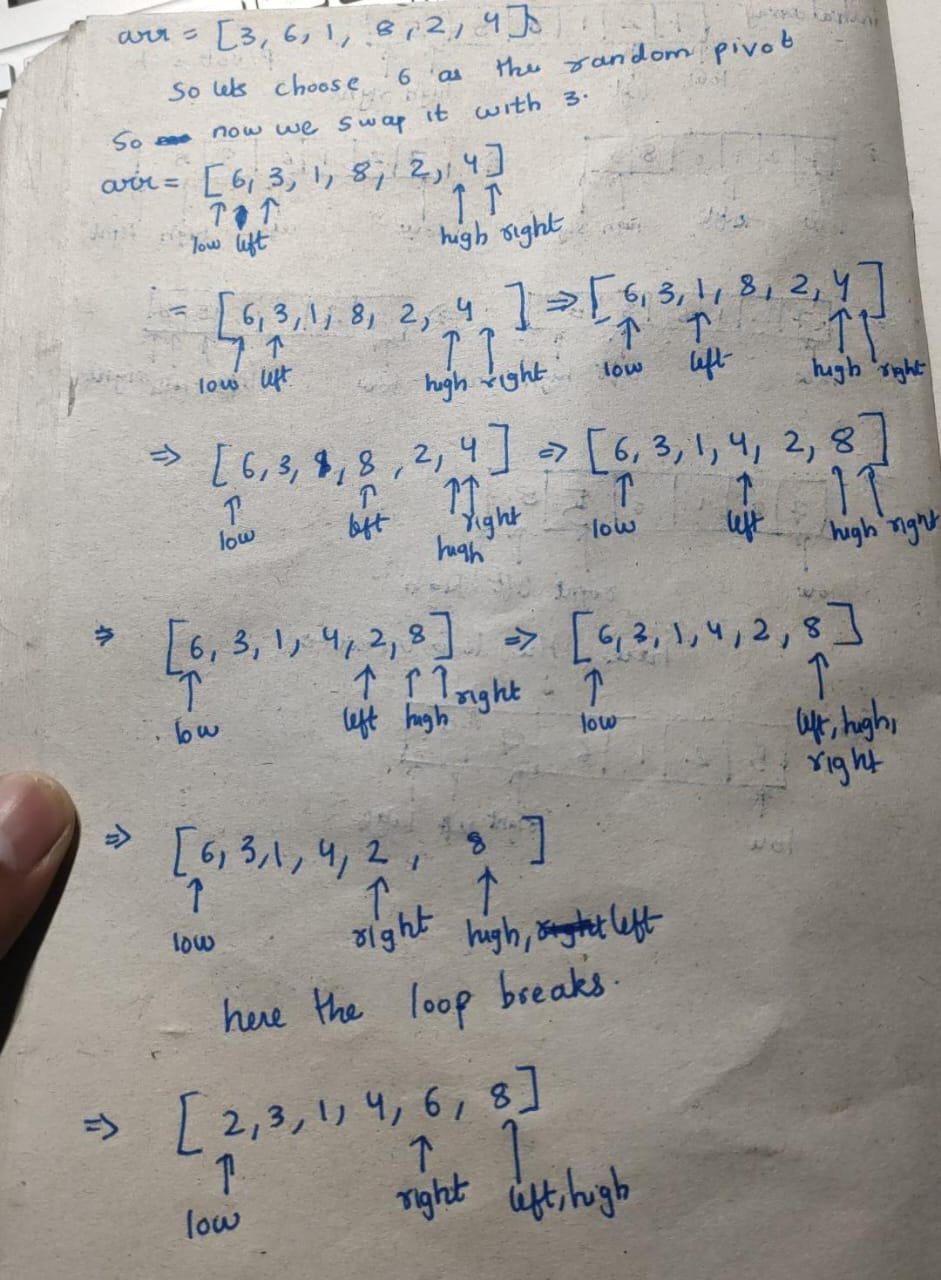 arr = [3, 6, 1, 8, 2, 4]
So lets choose 6 as the random pivot
So now we swap it with 3.
arr = [6, 3, 1, 8, 2, 4]
low left high right
= [6, 3, 1, 8, 2, 4 ] ⇒ [6, 3, 1, 8, 2, 4]
low left high right low left high right
⇒ [6, 3, 1, 8, 2, 4] ⇒ [6, 3, 1, 4, 2, 8]
low left right low left high right
high
⇒ [6, 3, 1, 4, 2, 8] ⇒ [6, 3, 1, 4, 2, 8]
low left high right low left, high,
right
⇒ [6, 3, 1, 4, 2, 8 ]
low right high, left
here the loop breaks.
⇒ [2, 3, 1, 4, 6, 8]
low right left, high